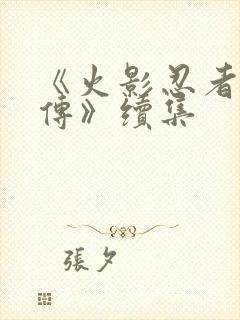 《火影忍者
傳》續集
張夕